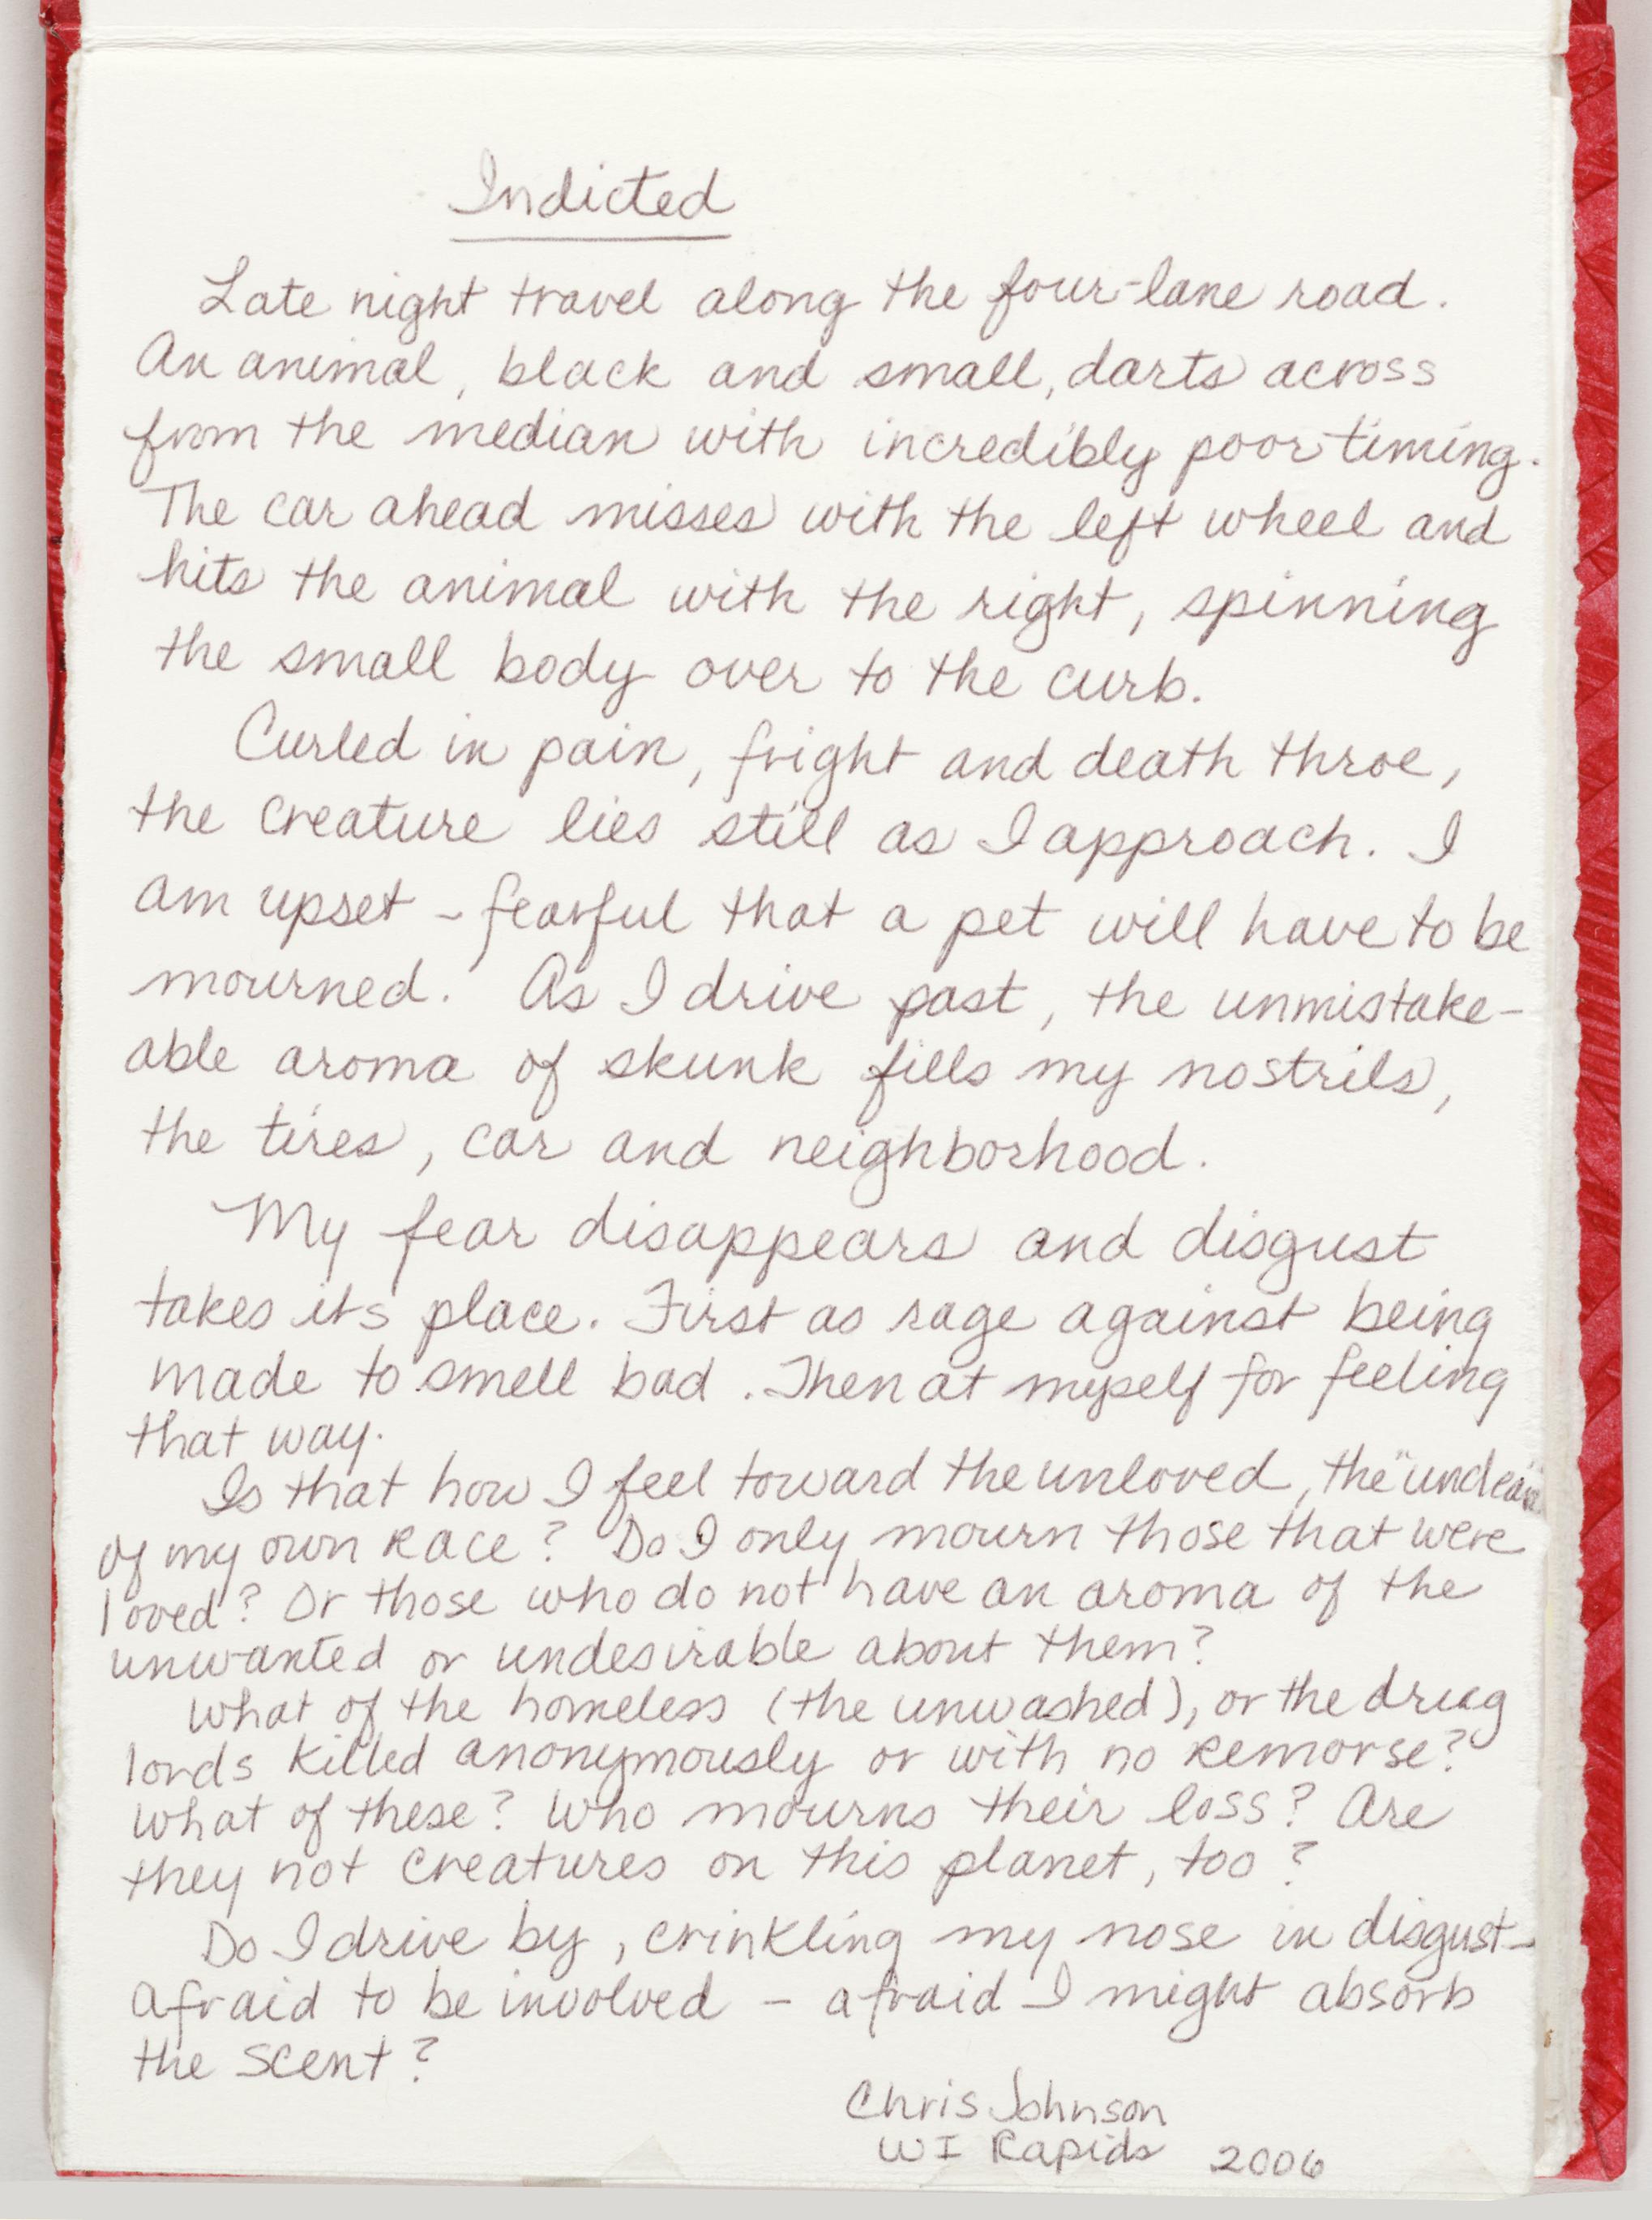 Indicted
Late night travel along the four-lane road.
An animal, black and small, darts across
from the median with incredibly poor timing.
The car ahead misses with the left wheel and
hits the animal with the right, spinning
the small body over to the curb.
Curled in pain, fright and death throe,
the creature lies still as I approach. I
am upset - fearful that a pet will have to be
mourned. As I drive past, the unmistake-
able aroma of skunk fills my nostrils,
the tires, car and neighborhood.
My fear disappears and disgust
takes its place. First as rage against being
made to smell bad. Then at myself for feeling
that way.
Is that how I feel toward the unloved, the "unclean"
of my own race? Do I only mourn those that were
loved? Or those who do not have an aroma of the
unwanted or undesirable about them?
What of the homeless (the unwashed), or the drug
lords killed anonymously or with no remorse?
What of these? Who mourns their loss? Are
they not creatures on this planet, too?
Do I drive by, crinkling my nose in disgust-
afraid to be involved - afraid I might absorb
the scent?
Chris Johnson
WI Rapids 2006